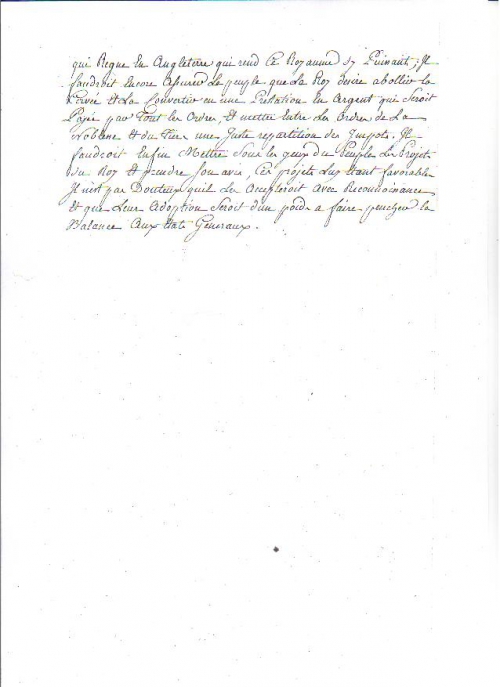 qui Regne En Angleterre qui rend Ce Royaume Sy Puissant; Il
faudroit Encore Assurer Le peuple que Le Roy desire abollir la
Corvée Et La Convertir en une Prestation En Argent qui Seroit
Payée par Tout les Ordres, Et mettre Entre Les Ordres de La
Noblesse Et du Tiers une Juste repartition des Impots. Il
faudroit Enfin Mettre Sous les yeux du Peuple Les Projets
du Roy Et prendre Son avis, Ces projets Luy Etant favorables
Il n'est pas Douteux quil Les Accepteroit Avec Reconnoissance
Et que Leur Adoption Seroit d'un poids a faire pencher la
Balance Aux Etats Generaux.